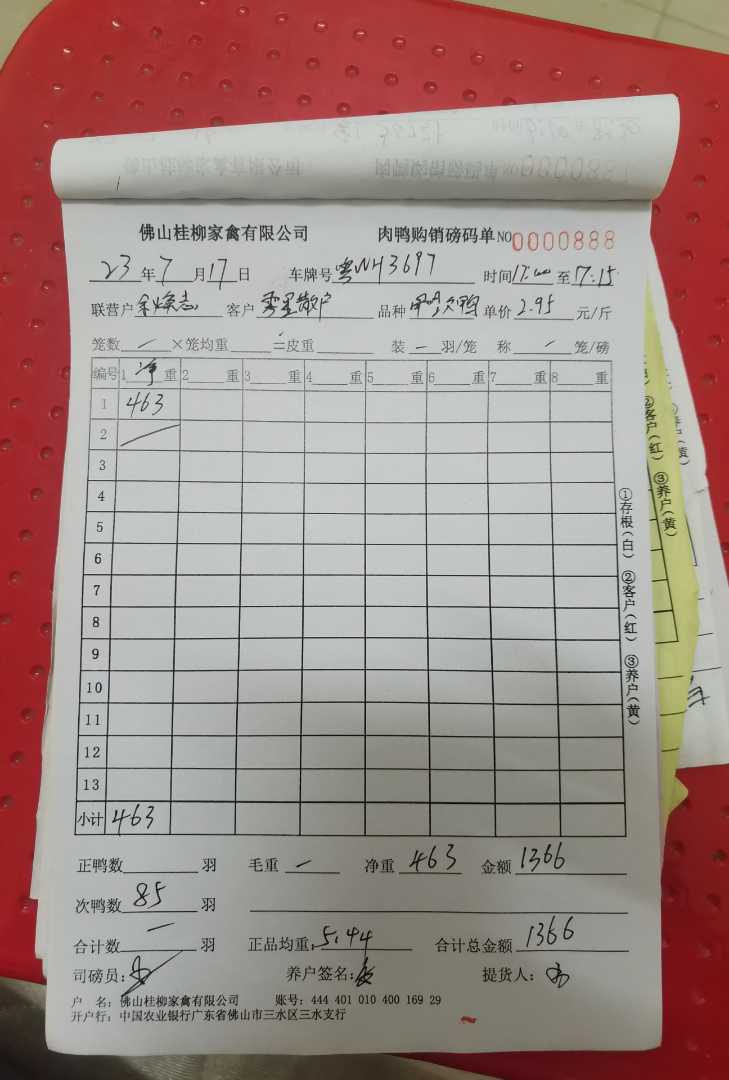 佛山桂柳家禽有限公司 肉鸭购销磅码单 NO 0000888
23年7月17日 车牌号 粤N43697 时间 17:00 至 17:15
联营户 余焕志 客户 零星散户 品种 鸭 单价 2.95 元/斤
笼数 — ×笼均重 =皮重 装 — 羽/笼 称 — 笼/磅
编号 1 净 重 2 重 3 重 4 重 5 重 6 重 7 重 8 重
1 463
2
3
4
5
6
7
8
9
10
11
12
13
小计 463
正鸭数 羽 毛重 — 净重 463 金额 1366
次鸭数 85 羽
合计数 — 羽 正品均重 5.44 合计总金额 1366
司磅员: 养户签名: 提货人:
户 名: 佛山桂柳家禽有限公司 账号: 444 401 010 400 169 29
开户行: 中国农业银行广东省佛山市三水区三水支行
①存根(白) ②客户(红) ③养户(黄)
②客户(红) ③养户(黄)